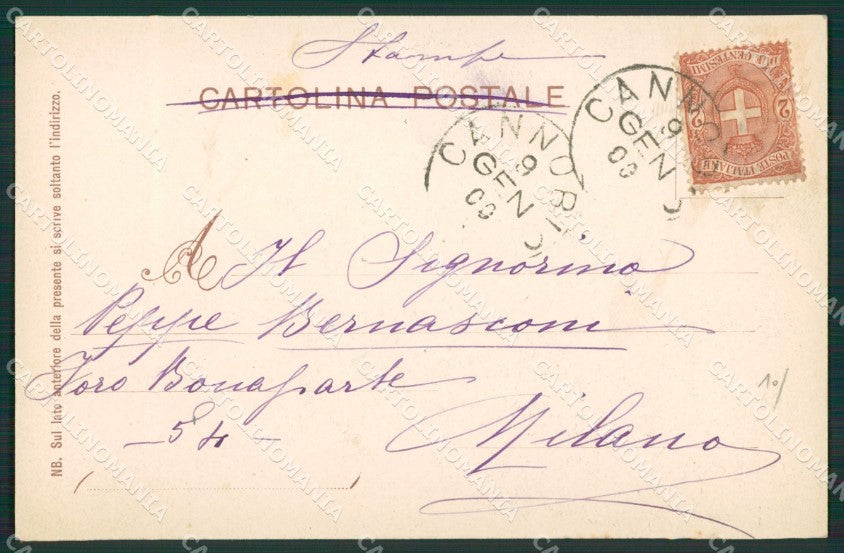 Stampe
CARTOLINA POSTALE
CANNO
9
GEN
00
CANNOR
9
GEN
00
POSTE ITALIANE
2 2
DUE CENTESIMI
A Il Signorino
Peppe Bernasconi
Foro Bonaparte
- 54 -
Milano
10/
NB. Sul lato anteriore della presente si scrive soltanto l'indirizzo.
CARTOLINOMANIA